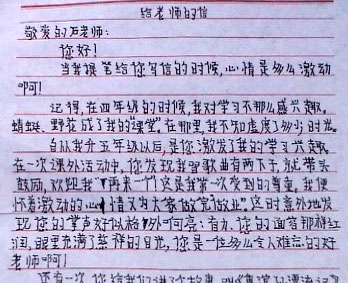 给老师的信
敬爱的石老师：
您好！
当我提笔给您写信的时候，心情是多么激动
啊！
记得，在四年级的时候，我对学习不那么感兴趣。
蜻蜓、野花成了我的“课堂”。在那里，我不知虚度了多少时光。
自从我升五年级以后，是您激发了我的学习兴趣。
在一次课外活动中，您发现我唱歌曲有两下子，就带头
鼓励，欢迎我“再来一个”这是我第一次受到的尊重，我便
怀着激动的心情又为大家做完做业”这时意外地发
现您的掌声好似格外响亮：有力，您的面容那样红
润，眼里充满了慈祥的目光，您是一位多么令人难忘的好
老师啊！
还有一次，您给我们讲了个故事，叫《鲁滨逊漂流记》